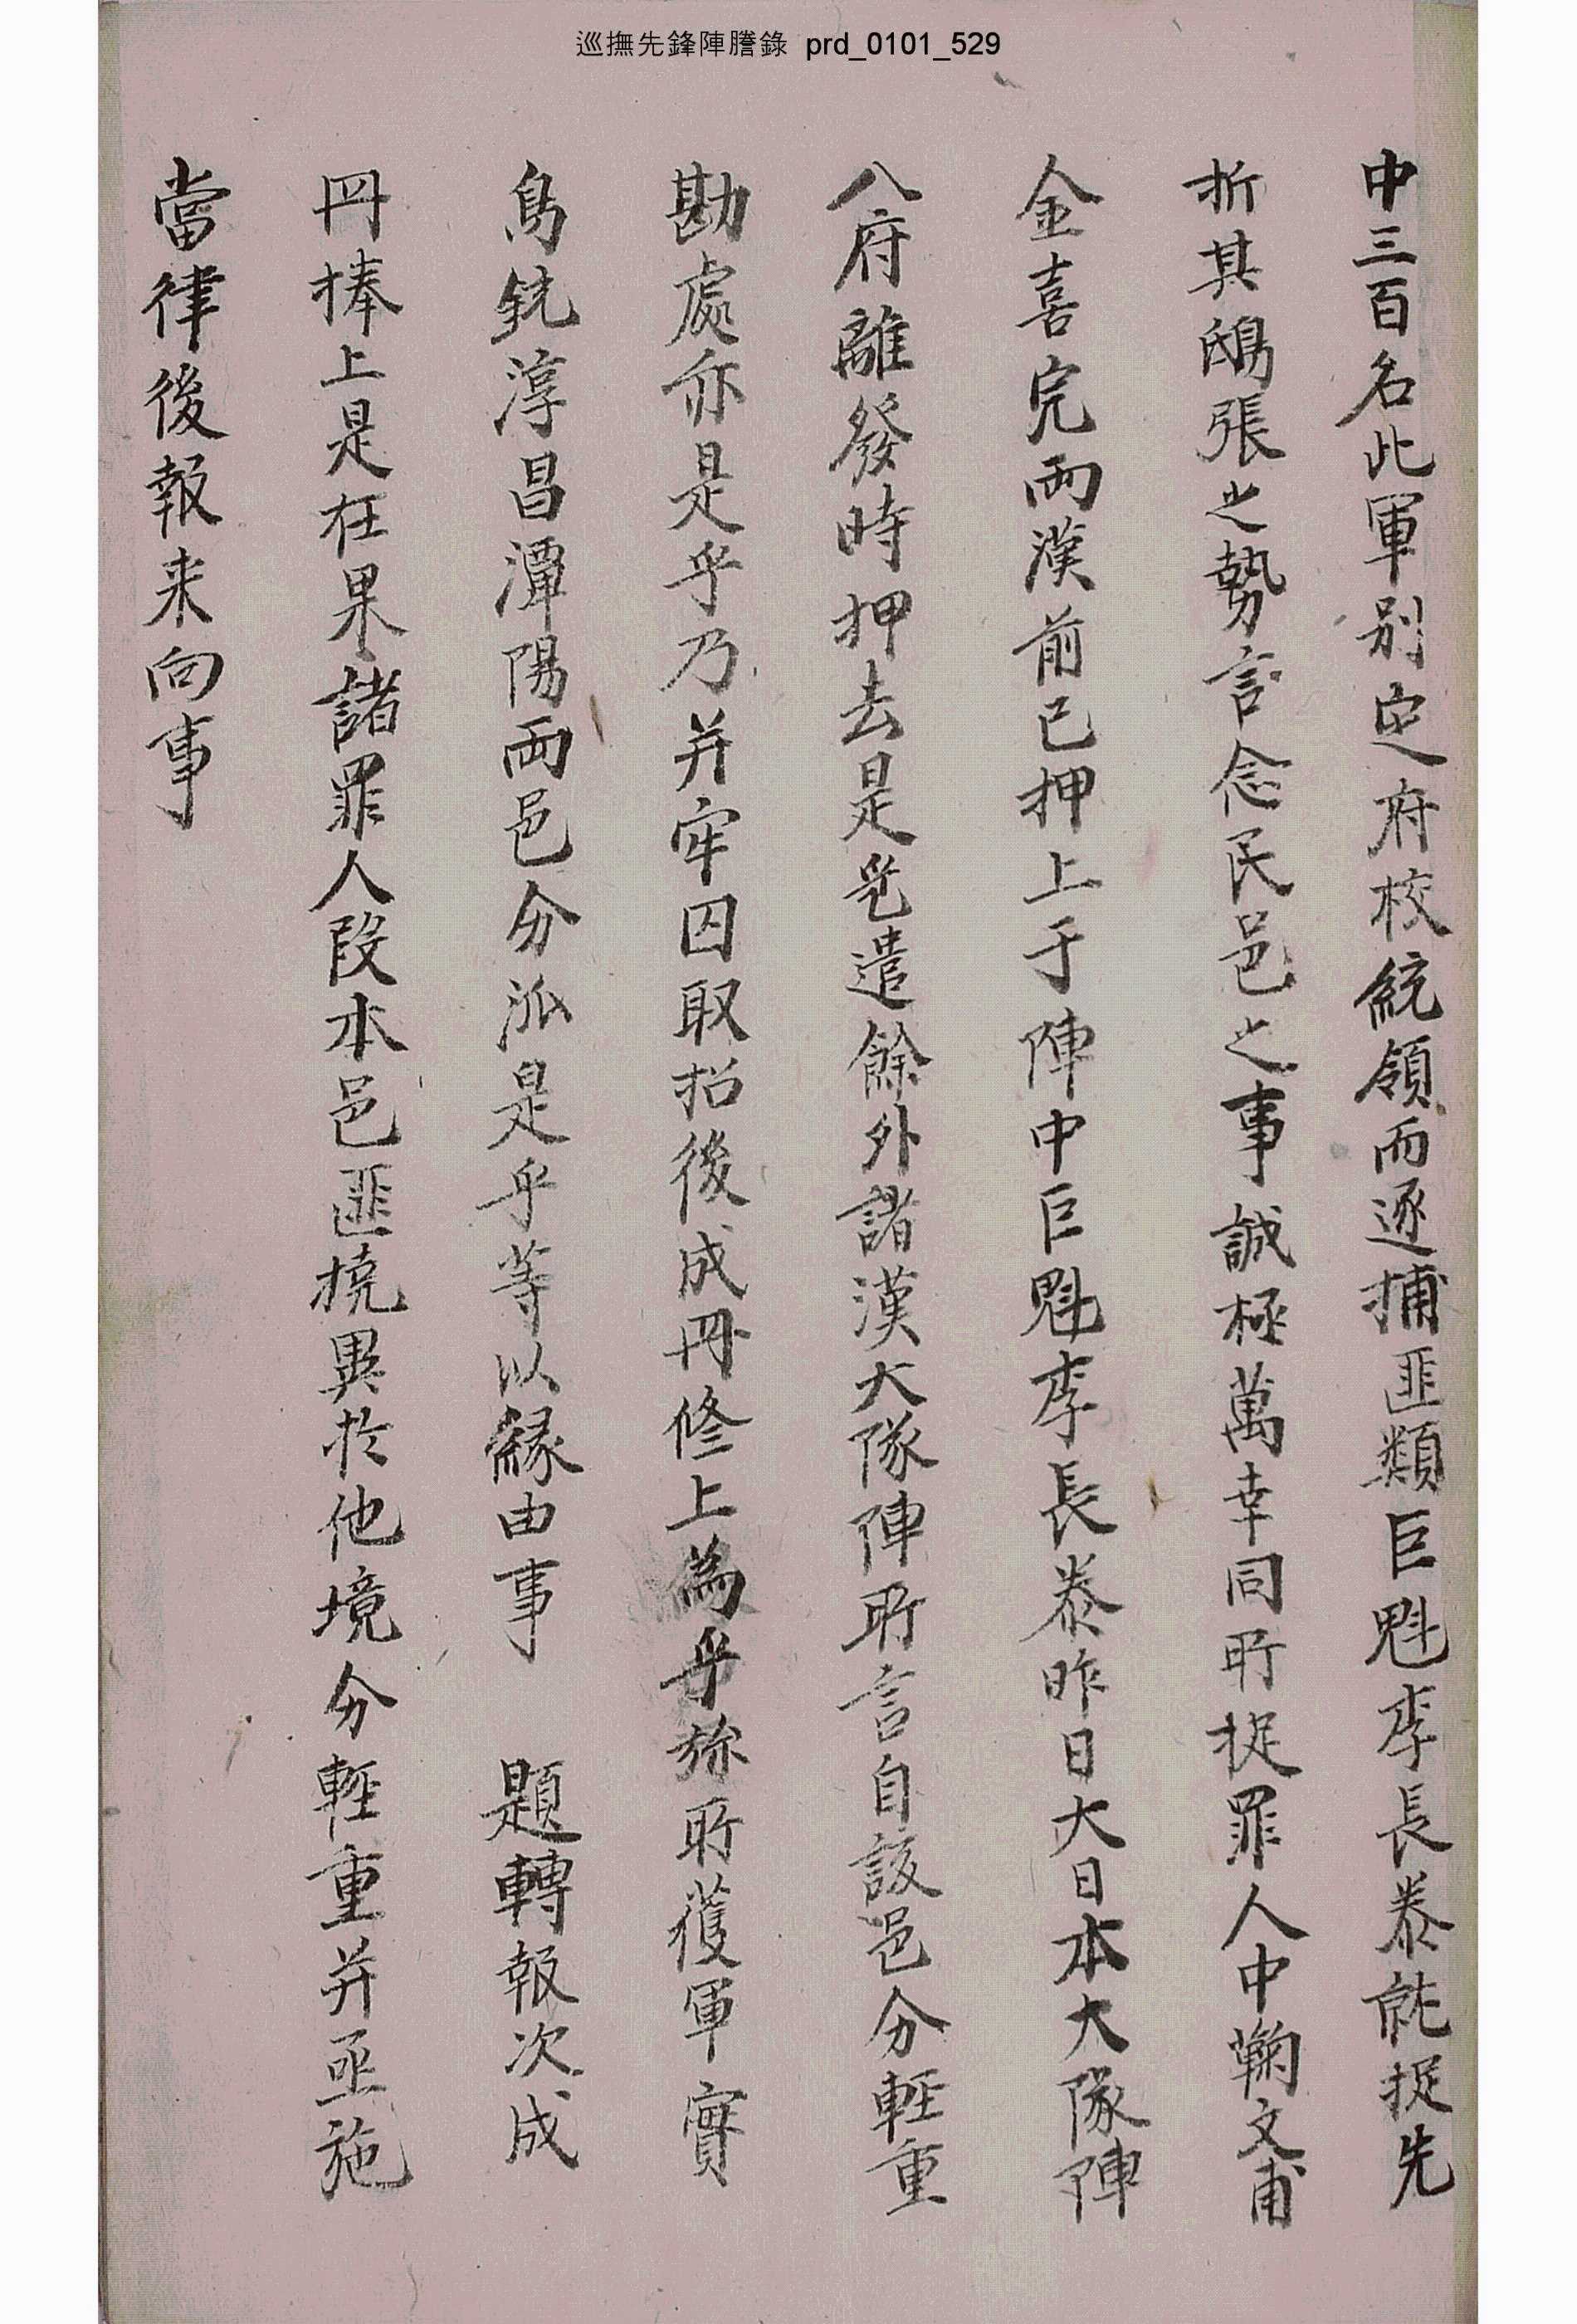 巡撫先鋒陣謄錄 prd_0101_529
中三百名此軍別定府校統領而逐捕匪類巨魁李長泰能捉先
折其鴟張之勢言念民邑之事誠極萬幸同所捉罪人中鞠文甫
金喜完兩漢前已押上于陣中巨魁李長泰昨日大日本大隊陣
入府離發時押去是乎遣餘外諸漢大隊陣所言自該邑分輕重
勘處亦是乎乃并牢囚取招後成冊修上爲乎旀所獲軍實
鳥銃淳昌潭陽兩邑分派是乎等以緣由事 題轉報次成
冊捧上是在果諸罪人段本邑匪撓異於他境分輕重并亟施
當律後報来向事